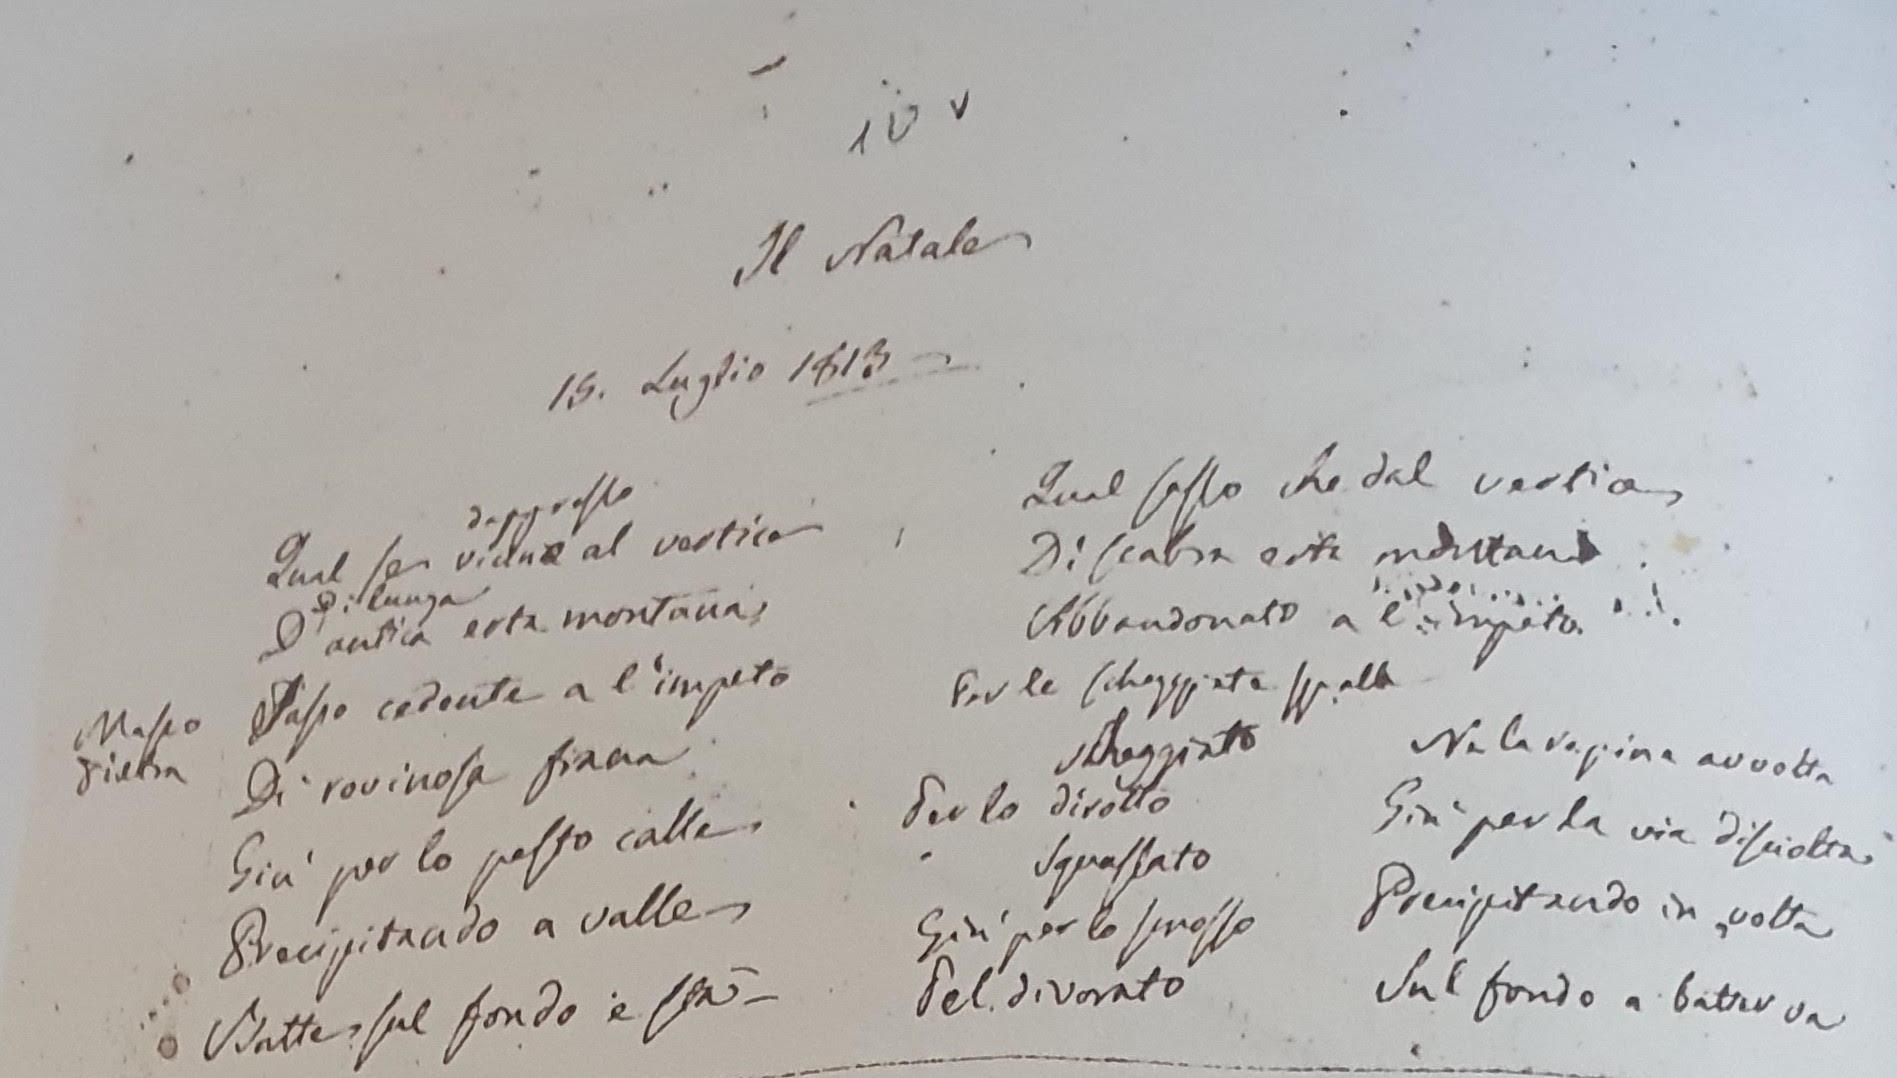 10 v
Il Natale
15. Luglio 1813
dappresso
Qual se vicina al vertice
Di lunga
D'antica erta montana,
Masso
Pietra
Sasso cedente a l'impeto
Di rovinosa frana
Giù per lo pesto calle
Precipitando a valle
Batte sul fondo e sta
Qual sasso che dal vertice
Di scabra erta montana
Abbandonato a l'impeto
Per le scheggiate spalle
scheggiato
Per lo dirotto
squassato
Giù per lo smosso
Pel divorato
Ne la rapina avvolta
Giù per la via disciolta
Precipitando in volta
Sul fondo a batter va